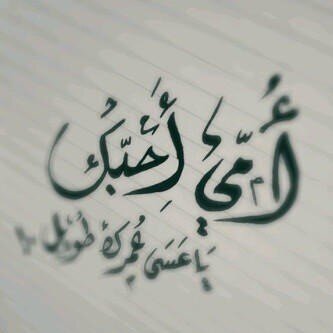 أُمّي أُحبّك
يَا عَسَى عُمرك طُويل